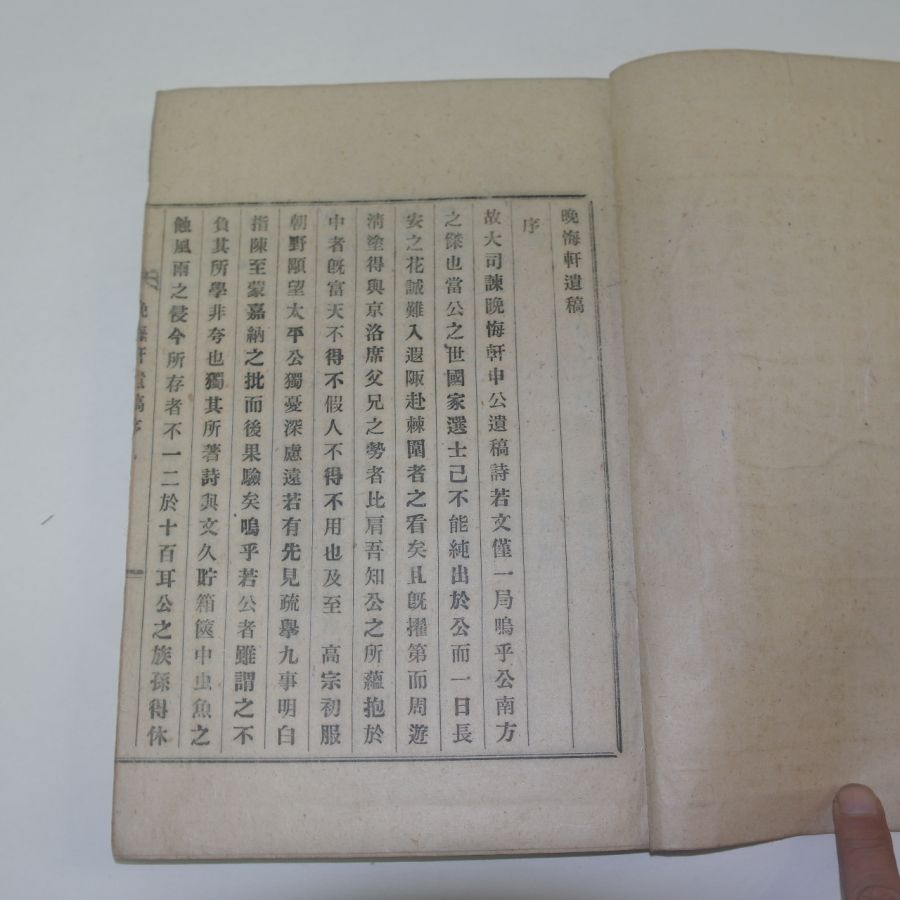 晩悔軒遺稿
序
故大司諫晩悔軒申公遺稿詩若文僅一局嗚乎公南方
之傑也當公之世國家選士己不能純出於公而一日長
安之花誠難入遐陬赴棘闈者之看矣且旣擢第而周遊
淸塗得與京洛席父兄之勢者比肩吾知公之所蘊抱於
中者旣富天不得不假人不得不用也及至　高宗初服
朝野顒望太平公獨憂深慮遠若有先見疏擧九事明白
指陳至蒙嘉納之批而後果驗矣嗚乎若公者雖謂之不
負其所學非夸也獨其所著詩與文久貯箱篋中虫魚之
蝕風雨之侵今所存者不一二於十百耳公之族孫得休
晩悔軒遺稿序
一